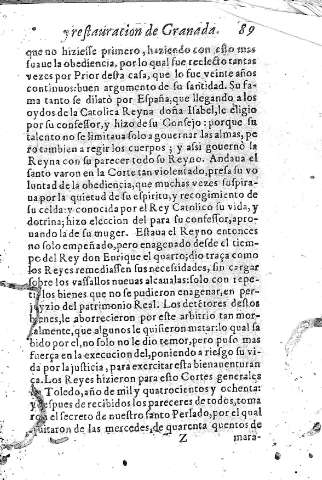 y restauracion de Granada. 89
que no hiziesse primero, haziendo con esto mas
suaue la obediencia, por lo qual fue reelecto tantas
vezes por Prior desta casa, que lo fue veinte años
continuos: buen argumento de su santidad. Su fa-
ma tanto se dilatò por España, que llegando a los
oydos de la Catolica Reyna doña Isabel, le eligio
por su confessor, y hizo de su Consejo; porque su
talento no se limitaua solo a gouernar las almas, pe
ro tambien a regir los cuerpos; y assi gouernò la
Reyna con su parecer todo su Reyno. Andaua el
santo varon en la Corte tan violentado, presa su vo
luntad de la obediencia, que muchas vezes suspira-
ua por la quietud de su espiritu, y recogimiento de
su celda: y conocida por el Rey Catolico su vida, y
dotrina; hizo eleccion del para su confessor, apro-
uando la de su muger. Estaua el Reyno entonces
no solo empeñado, pero enagenado desde el tiem-
po del Rey don Enrique el quarto; dio traça como
los Reyes remediassen sus necessidades, sin cargar
sobre los vassallos nueuas alcaualas: solo con repe-
tir los bienes que no se pudieron enagenar, en per-
juyzio del patrimonio Real. Los detetores destos
bienes, le aborrecieron por este arbitrio tan mor-
talmente, que algunos le quisieron matar: lo qual sa
bido por el, no solo no le dio temor, pero puso mas
fuerça en la execucion del, poniendo a riesgo su vi-
da por la justicia, para exercitar esta bienauenturan
ça. Los Reyes hizieron para esto Cortes generales
en Toledo, año de mil y quatrocientos y ochenta:
y despues de recibidos los pareceres de todos, toma
ron el secreto de nuestro santo Perlado, por el qual
quitaron de las mercedes, de quarenta quentos de
Z mara-